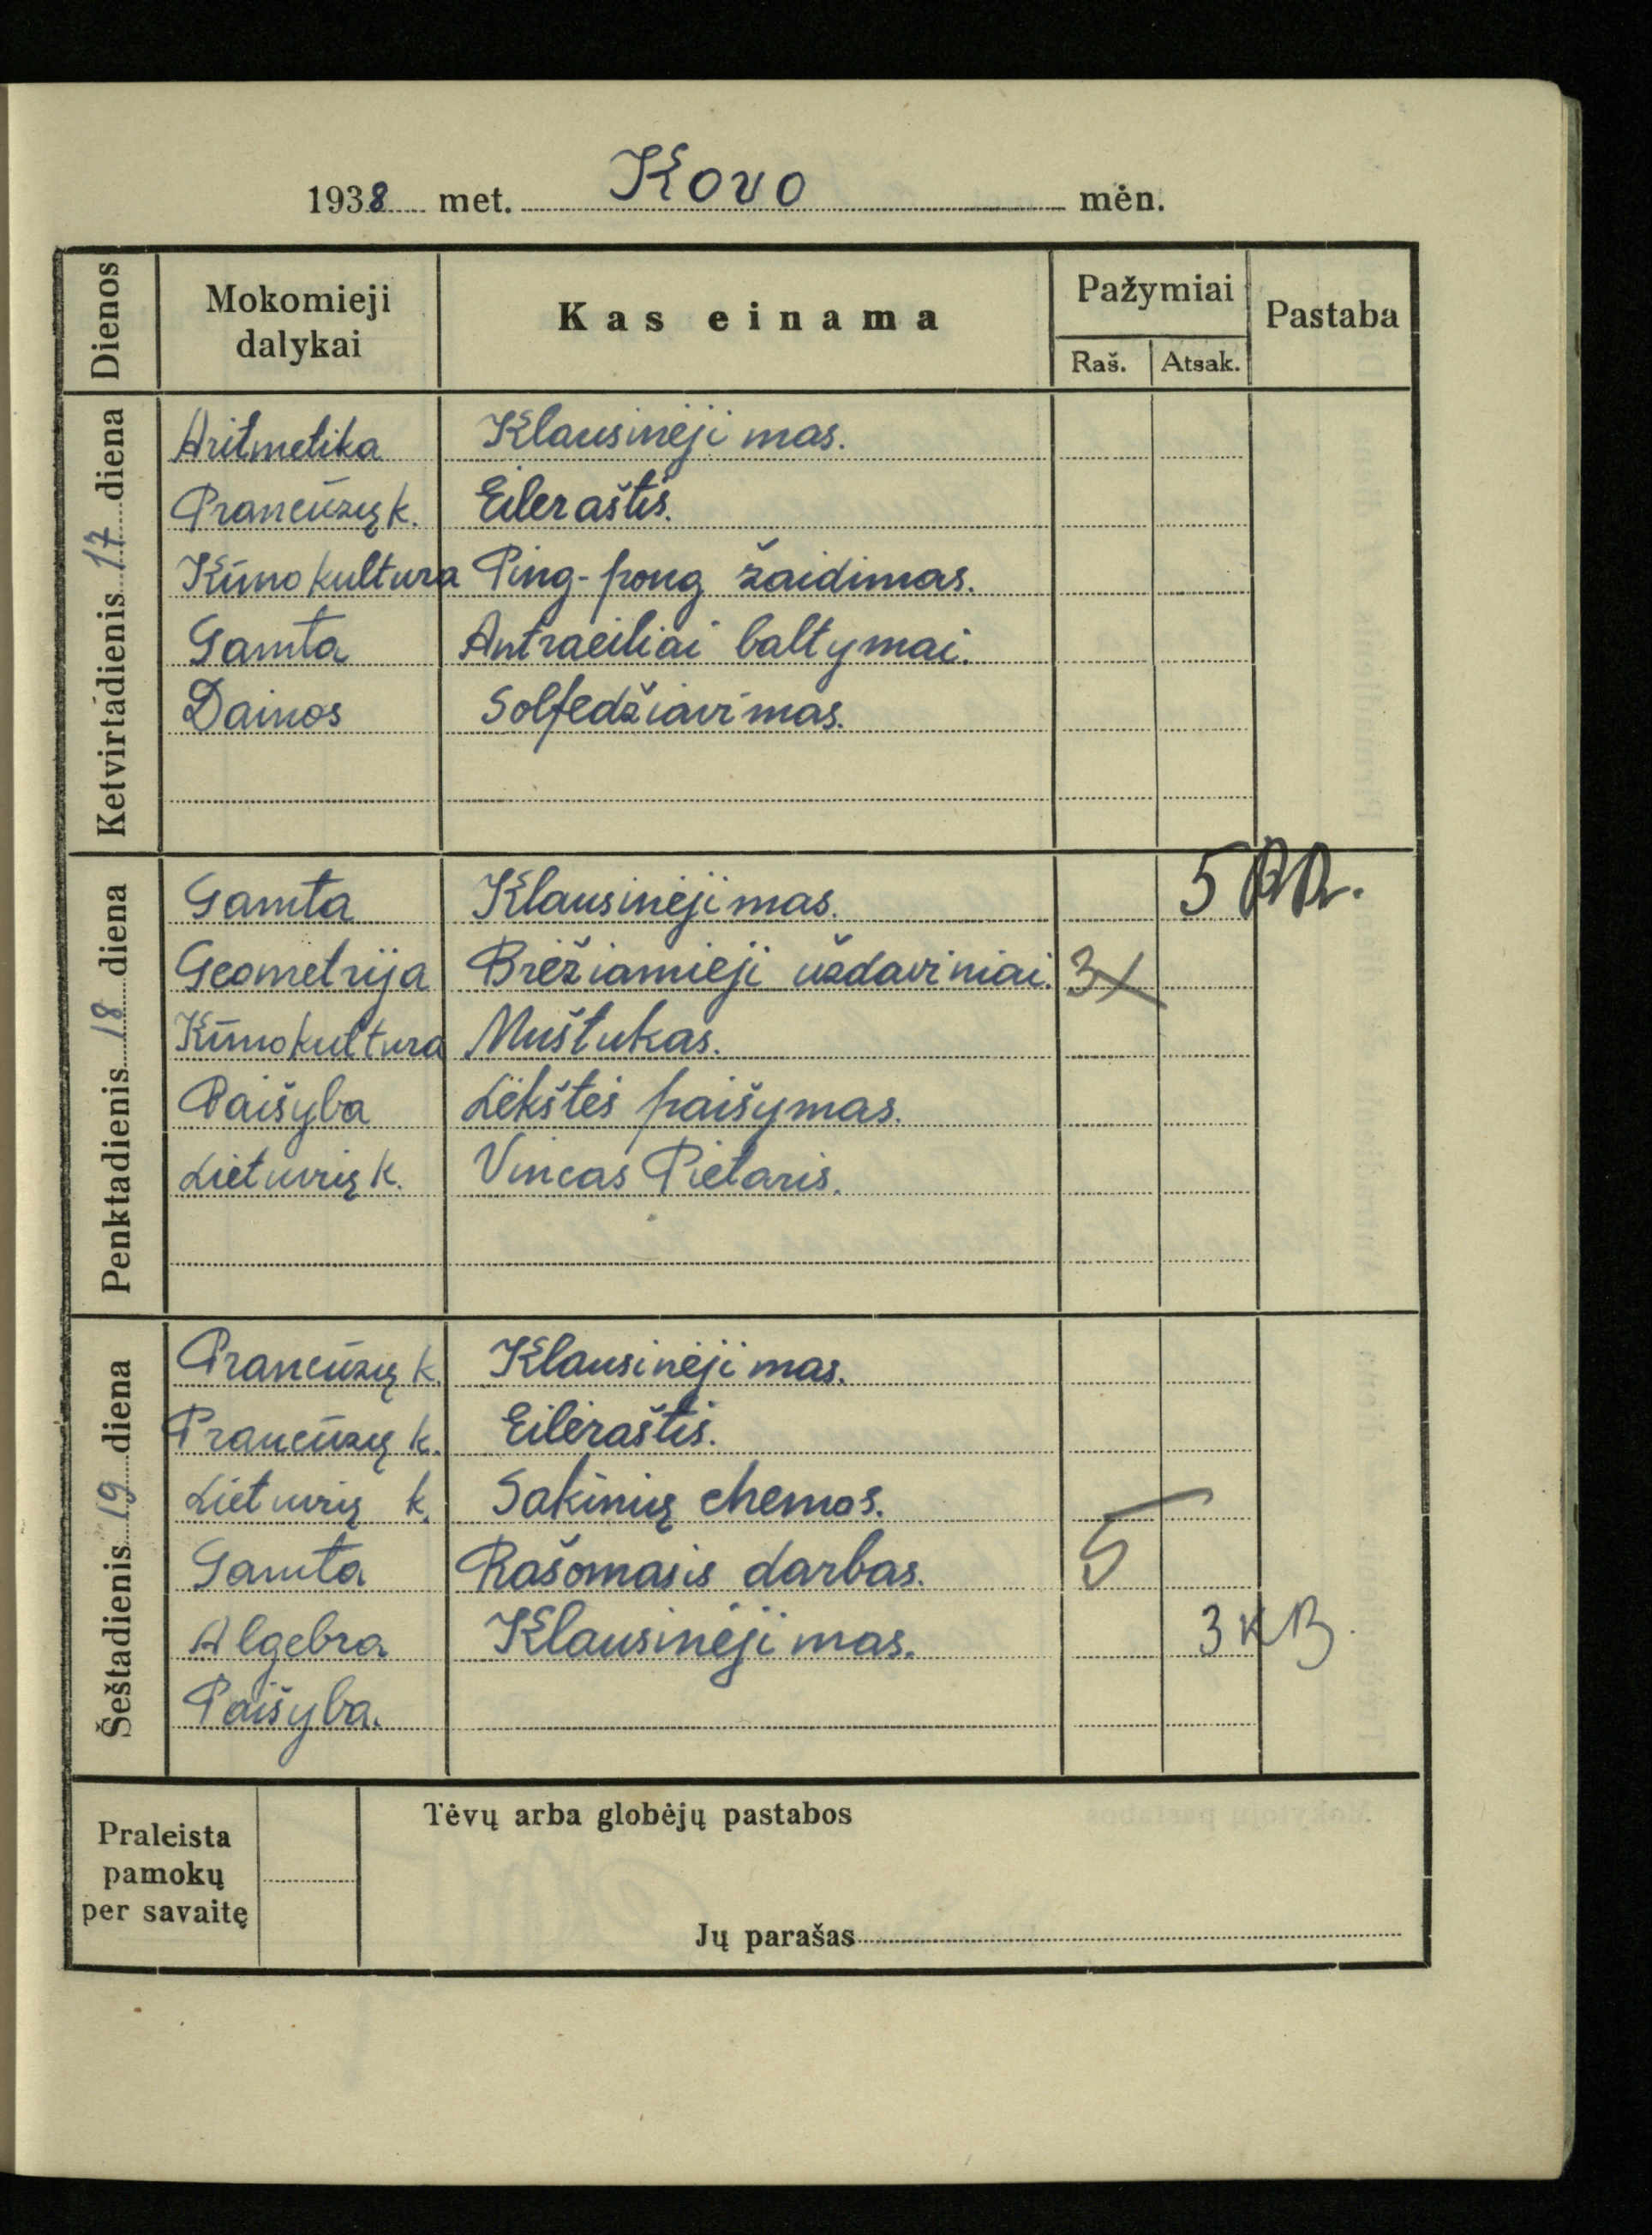 1938 met. Kovo mėn.
Dienos Mokomieji dalykai Kas einama Pažymiai Pastaba
Raš. Atsak.
Ketvirtadienis 17 diena
Aritmetika Klausinėjimas.
Prancūzų k. Eilėraštis.
Kūno kultura Ping-pong žaidimas.
Gamta Antraeiliai baltymai.
Dainos Solfedžiavimas.
Penktadienis 18 diena
Gamta Klausinėjimas. 5
Geometrija Brėžiamieji uždaviniai. 3
Kūno kultura Muštukas.
Paišyba Lėkštės paišymas.
Lietuvių k. Vincas Pietaris.
Šeštadienis 19 diena
Prancūzų k. Klausinėjimas.
Prancūzų k. Eilėraštis.
Lietuvių k. Sakinių chemos.
Gamta Rašomasis darbas. 5
Algebra Klausinėjimas. 3 KB
Paišyba.
Praleista
pamokų
per savaitę
Tėvų arba globėjų pastabos
Jų parašas